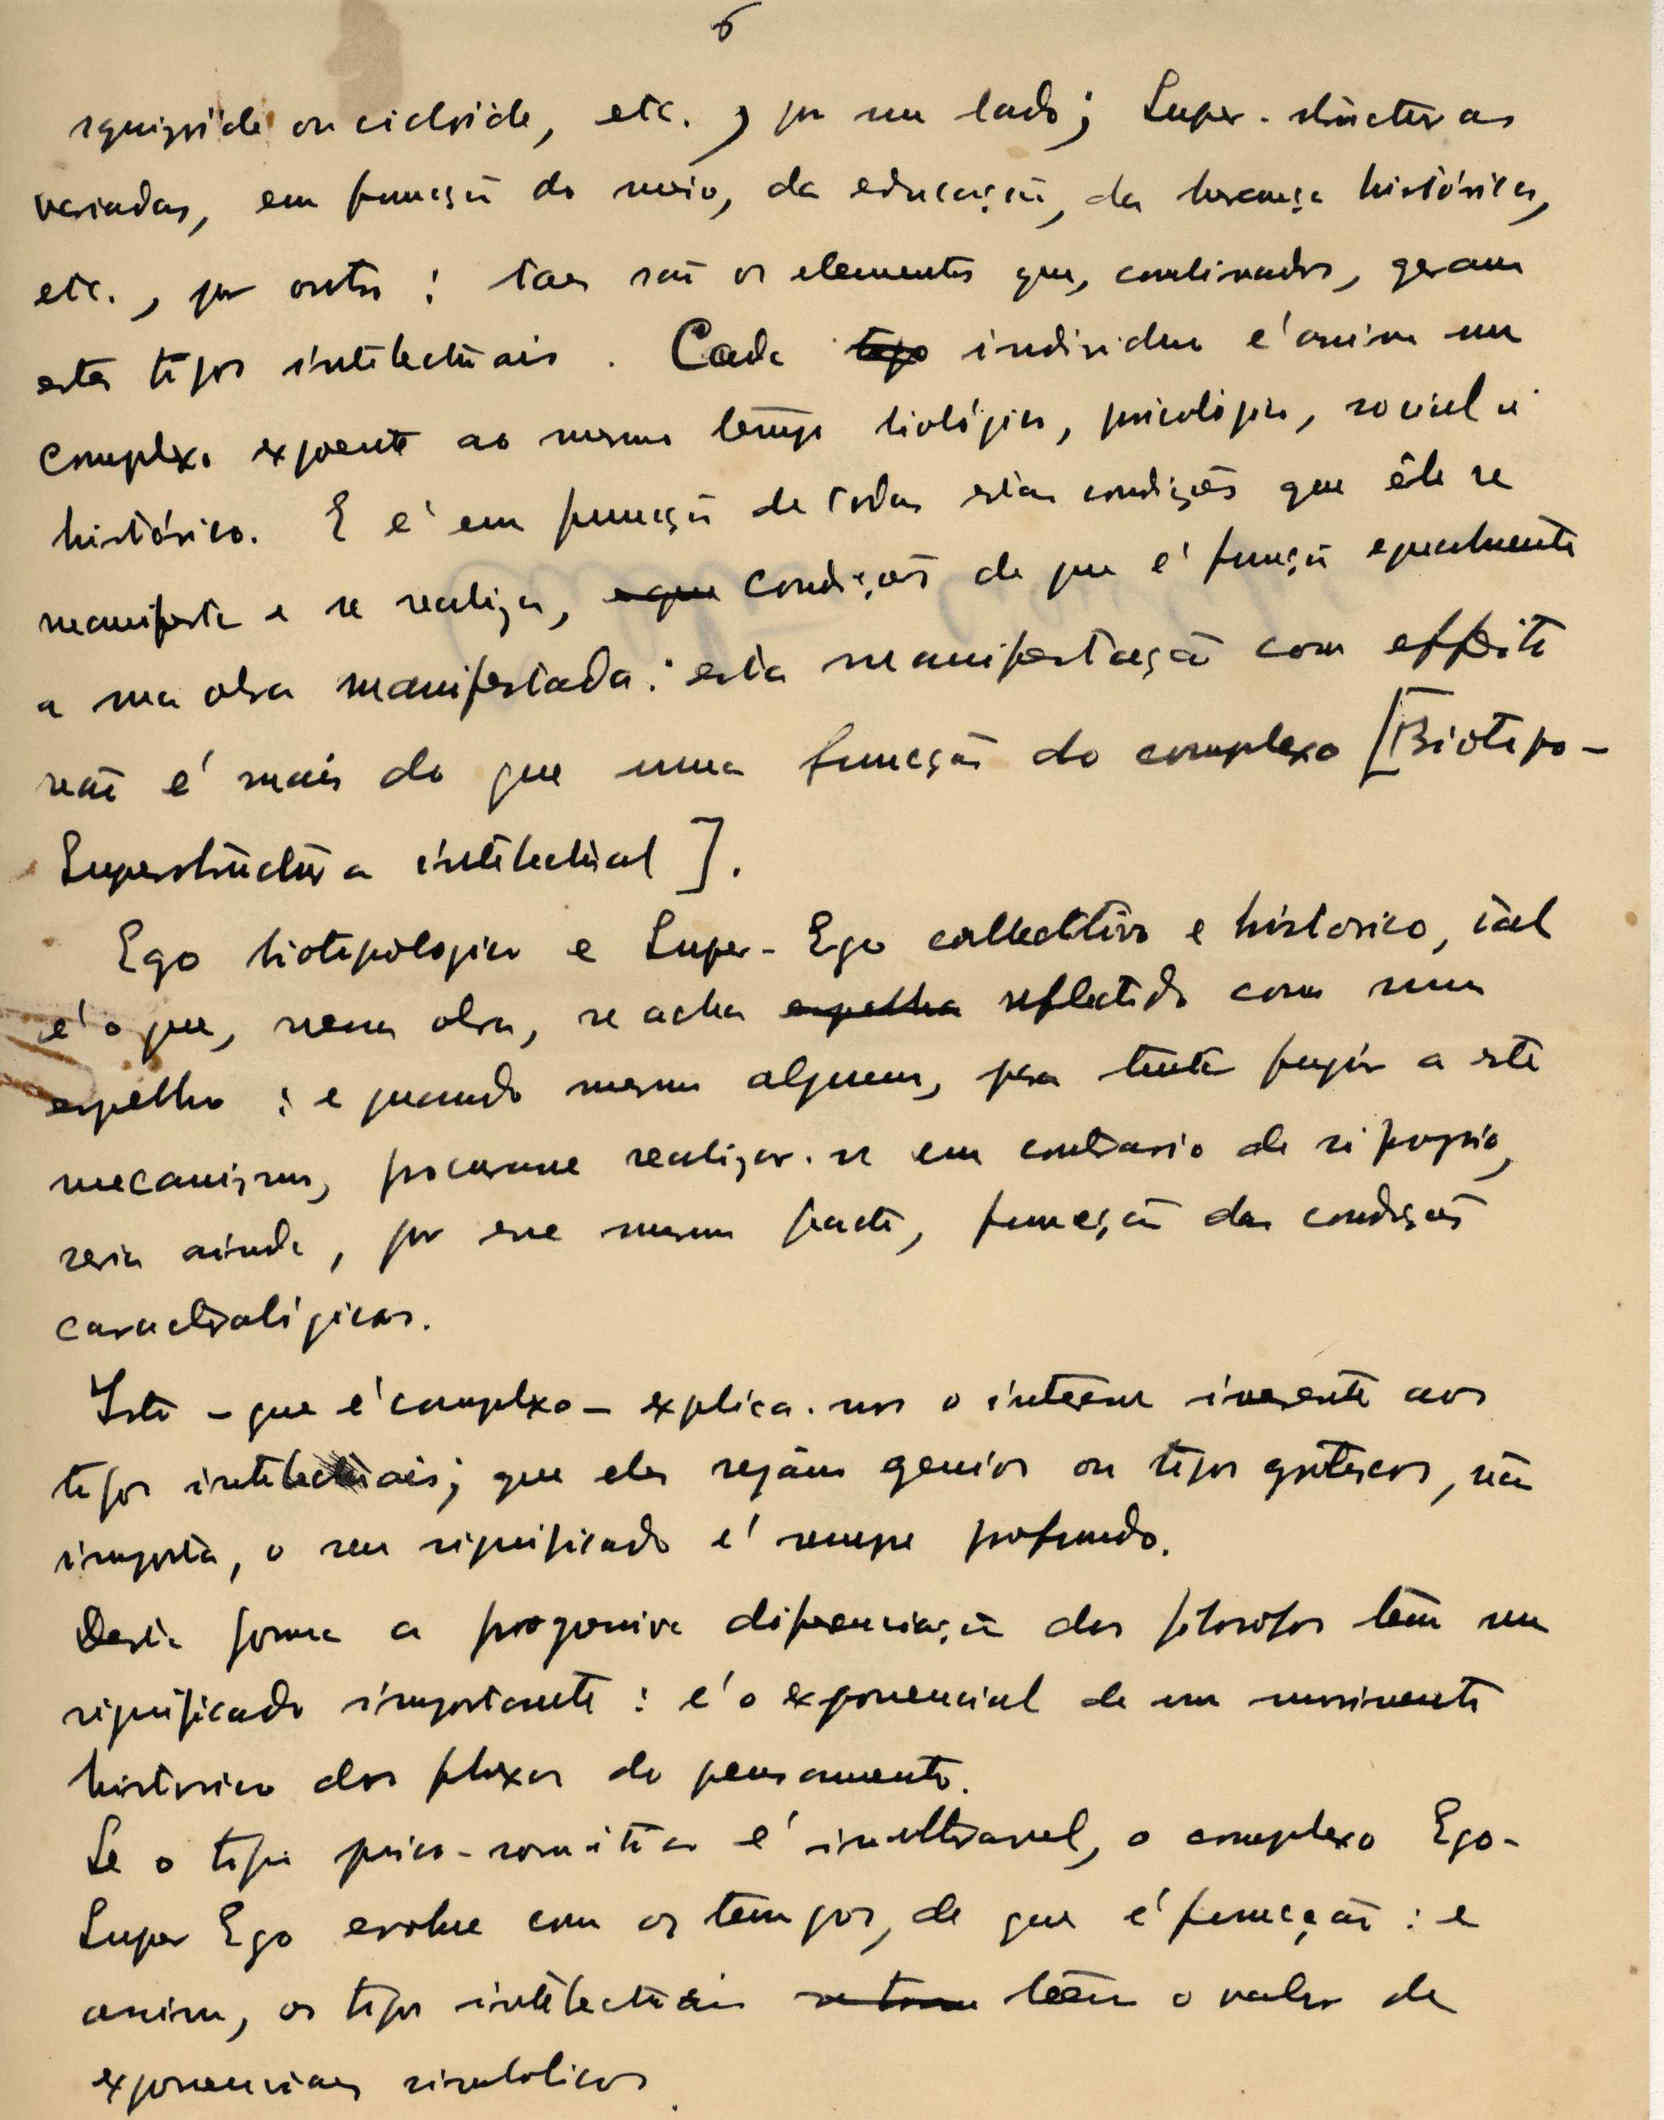 6
squizoide ou cicloide, etc., por um lado; Super-structuras
variadas, em funcção do meio, da educação, da herança histórica,
etc., por outro: taes são os elementos que, combinados, geram
estes tipos intelectuais. Cada tipo individuo é assim um
complexo expoente ao mesmo tempo biológico, psicológico, social e
histórico. E é em funcção de todas estas condições que êle se
manifesta e se realiza, e que condições de que é função egualmente
a sua obra manifestada: esta manifestação com effeito
não é mais do que uma funcção do complexo [Biotipo-
Superstructura intelectual].
Ego biotipologico e Super-Ego collectivo e historico, tal
é o que, nessa obra, se acha espelha reflectido como num
espelho: e quando mesmo alguem, para tentar fugir a este
mecanismo, procurasse realizar-se em contrario de si proprio,
seria ainda, por esse mesmo facto, funcção das condições
caracterológicas.
Isto - que é complexo - explica-nos o interesse inerente aos
tipos intelectuais; que eles sejam genios ou tipos grotescos, não
importa, o seu significado é sempre profundo.
Desta forma a progressiva diferenciação dos filosofos tem um
significado importante: é o exponencial de um movimento
historico dos fluxos do pensamento.
Se o tipo psico-somático é inalteravel, o complexo Ego-
Super Ego evolue com os tempos, de que é funcção: e
assim, os tipos intelectuais teem o valor de
exponenciaes simbolicos.